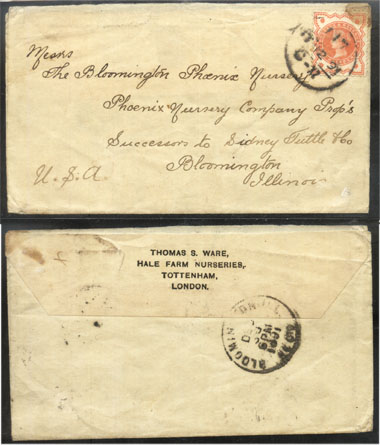 Messrs
The Bloomington Phœnix Nursery
Phoenix Nursery Company Prop's
Successors to Sidney Tuttle & Co
Bloomington
Illinois
U.S.A.
THOMAS S. WARE,
HALE FARM NURSERIES,
TOTTENHAM,
LONDON.
BLOOMIN
1891